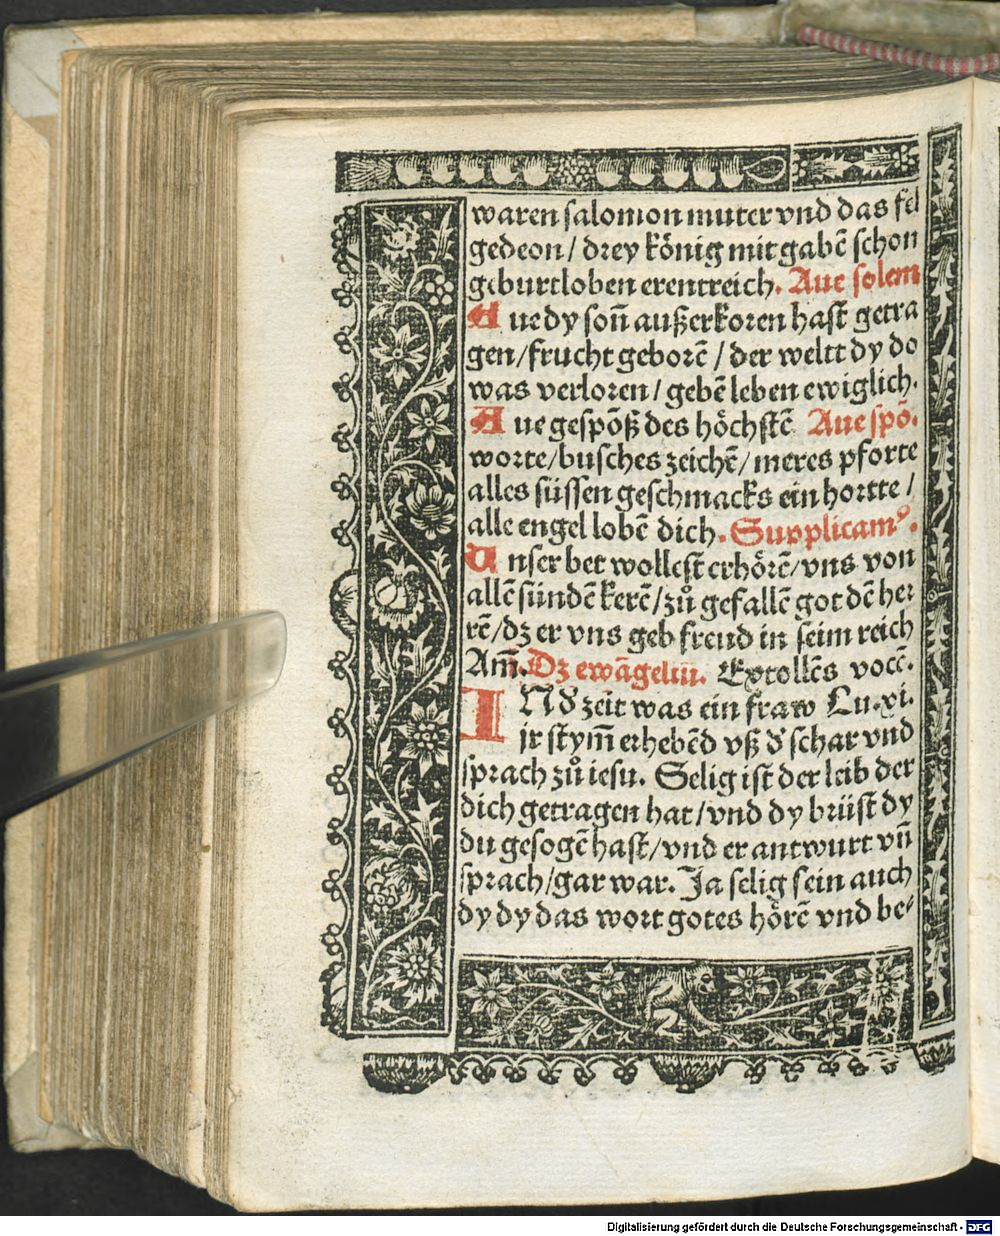 waren salomon muter vnd das fel
gedeon / drey könig mit gabē schon
geburt loben erentreich. Aue solem
Aue dy soñ außerkoren hast getra
gen / frucht geborē / der weltt dy do
was verloren / gebē leben ewiglich.
Aue gespōß des höchstē Aue spō.
worte / busches zeichē / meres pforte
alles süssen geschmacks ein hortte /
alle engel lobē dich. Supplicamꝰ.
Unser bet wollest erhörē / vns von
allē sündē kerē / zů gefallē got dē her
rē / dz er vns geb freud in seim reich
Am̄. Dz ewāgeliū. Extollēs vocē.
IN d̕ zeit was ein fraw Lu. xi.
jr stym̄ erhebēd vß d̕ schar vnd
sprach zů iesu. Selig ist der leib der
dich getragen hat / vnd dy brüst dy
du gesogē hast / vnd er antwurt vn̄
sprach / gar war. Ja selig sein auch
dy dy das wort gotes hörē vnd be⸗
Digitalisierung gefördert durch die Deutsche Forschungsgemeinschaft - DFG